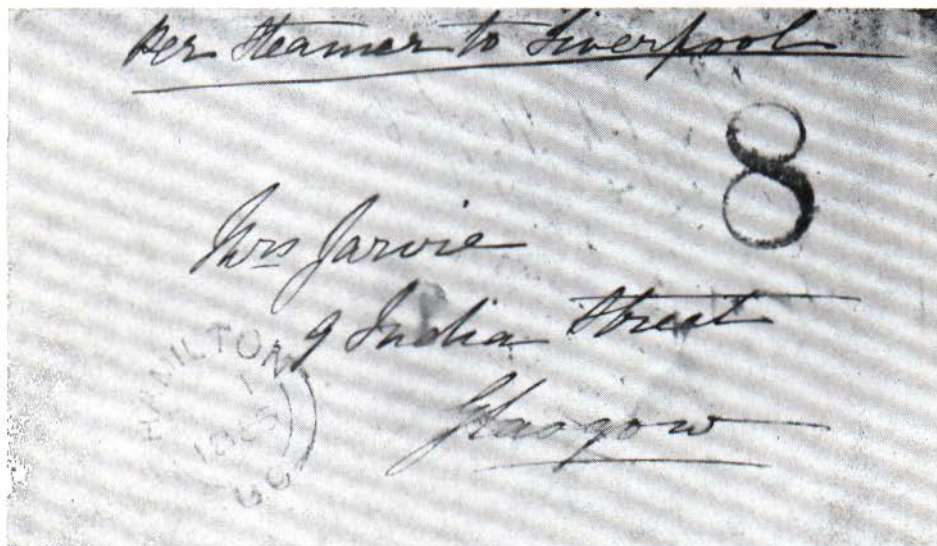 Per Steamer to Liverpool
8
Mrs Jarvie
9 India Street
Glasgow
HAMILTON